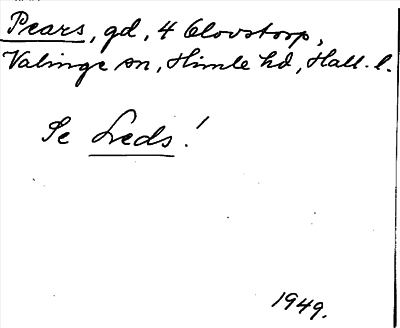 Pears, gd, 4 Olovstorp,
Valinge sn, Himle hd, Hall. l.
Se Leds!
1949.